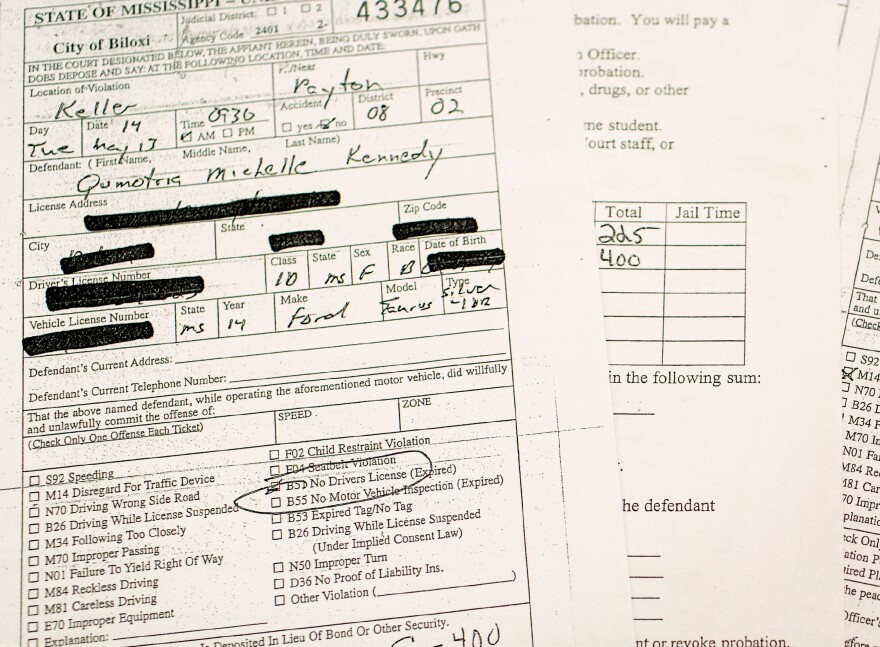 STATE OF MISSISSIPPI
Judicial District: ☐ 1 ☐ 2
433476
City of Biloxi
Agency Code 2401 2-
IN THE COURT DESIGNATED BELOW, THE AFFIANT HEREIN, BEING DULY SWORN, UPON OATH
DOES DEPOSE AND SAY: AT THE FOLLOWING LOCATION, TIME AND DATE:
Location of Violation
Keller
/Near
Payton
Hwy
Day
Tue
Date 14
May 13
Time 0936
☑ AM ☐ PM
Accident
☐ yes ☑ no
District
08
Precinct
02
Defendant: ( First Name, Middle Name, Last Name)
Qumotria Michelle Kennedy
License Address
City
State
Zip Code
Driver's License Number
Class
ID
State
ms
Sex
F
Race
B
Date of Birth
Vehicle License Number
State
ms
Year
14
Make
Ford
Model
Taurus
Type
Silver
Defendant's Current Address:
Defendant's Current Telephone Number:
That the above named defendant, while operating the aforementioned motor vehicle, did willfully
and unlawfully commit the offense of:
(Check Only One Offense Each Ticket)
SPEED
ZONE
☐ S92 Speeding
☐ M14 Disregard For Traffic Device
☐ N70 Driving Wrong Side Road
☐ B26 Driving While License Suspended
☐ M34 Following Too Closely
☐ M70 Improper Passing
☐ N01 Failure To Yield Right Of Way
☐ M84 Reckless Driving
☐ M81 Careless Driving
☐ E70 Improper Equipment
☐ Explanation:
☐ F02 Child Restraint Violation
☐ F04 Seatbelt Violation
☑ B51 No Drivers License (Expired)
☐ B55 No Motor Vehicle Inspection (Expired)
☐ B53 Expired Tag/No Tag
☐ B26 Driving While License Suspended
(Under Implied Consent Law)
☐ N50 Improper Turn
☐ D36 No Proof of Liability Ins.
☐ Other Violation ( )
Is Deposited In Lieu Of Bond Or Other Security.
400
bation. You will pay a
Officer.
robation.
, drugs, or other
me student.
ourt staff, or
Total Jail Time
225
400
in the following sum:
he defendant
nt or revoke probation.
That
and u
(Check
☐ S92
☒ M14
N70
B26 D
M34 F
M70 In
N01 Fa
M84 Re